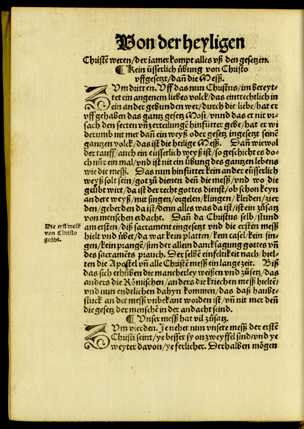 Von der heyligen
Christē weren/ der iamer kompt alles vß den gesetzen.
¶ Kein üsserlich übung von Christo
vffgesetzt/ dañ die Meß.
ZVm dritten. Vff das nun Christus/ im bereyt-
tet ein angenem liebes volck/ das eintrechtlich in
ein ander gebunden wer/ durch die liebe/ hat er
vff gehaben das gantz gesetz Mosi/
vnd hinfürter gebe/ hat er wi
derumb nit me dañ ein weyß oder gesetz ingesetzt seinē
gantzen volck/ das ist die heilige Meß. Dañ wiewol
der tauff/ auch ein eüsserlich weyß ist/ so geschicht es do
ch nūr ein mal/ vnd ist nit ein übung des gantzen lebens
wie die meß. Das nun hinfürter kein ander eüsserlich
weyß sol sein/ got zů dienen dēn die meß/ vnd wo die
geübt wirt/ da ist der recht gottes dienst/ ob schon keyn
ander weyß/ mit singen/ orgelen/ klingen/ kleider/ zier
den/ geberden da ist/ denn alles was da ist/ ist ein zůsatz
von menschen erdacht. Dañ da Christus selb/ stund
am ersten/ diß sacrament eingesetzt vnd die ersten messz
hielt vnd übet/ da wz kein platten/ kein casel/ kein sin-
gen/ kein prangē/ sunder allein dancksagung gottes vñ
des sacramēts prauch. Der selbē einfelt keit nach hiel-
ten die Apostel vñ alle Christē messz ein lange zeyt. Biß
das sich erhůben die mancherley weißen vnd zůsetz/ das
anders die Römischen/ anders die kriechen messz heltē/
vnd nun endtlichen dahyn kommen/ das daß haubt-
stuck an der meß vnbekant worden ist/ vñ nit mer deñ
die gesetz der menschē in der andacht seind.
Wie erstmals
von Christo
gehebt.
¶ Vnser messz hat vil zůsatz.
ZVm vierden. Je neher nun vnsere messz der erstē
Christi seint/ ye besser sy on zweyffel sind/ vnd ye
weyter davon/ ye ferlicher. Derhalben mögen